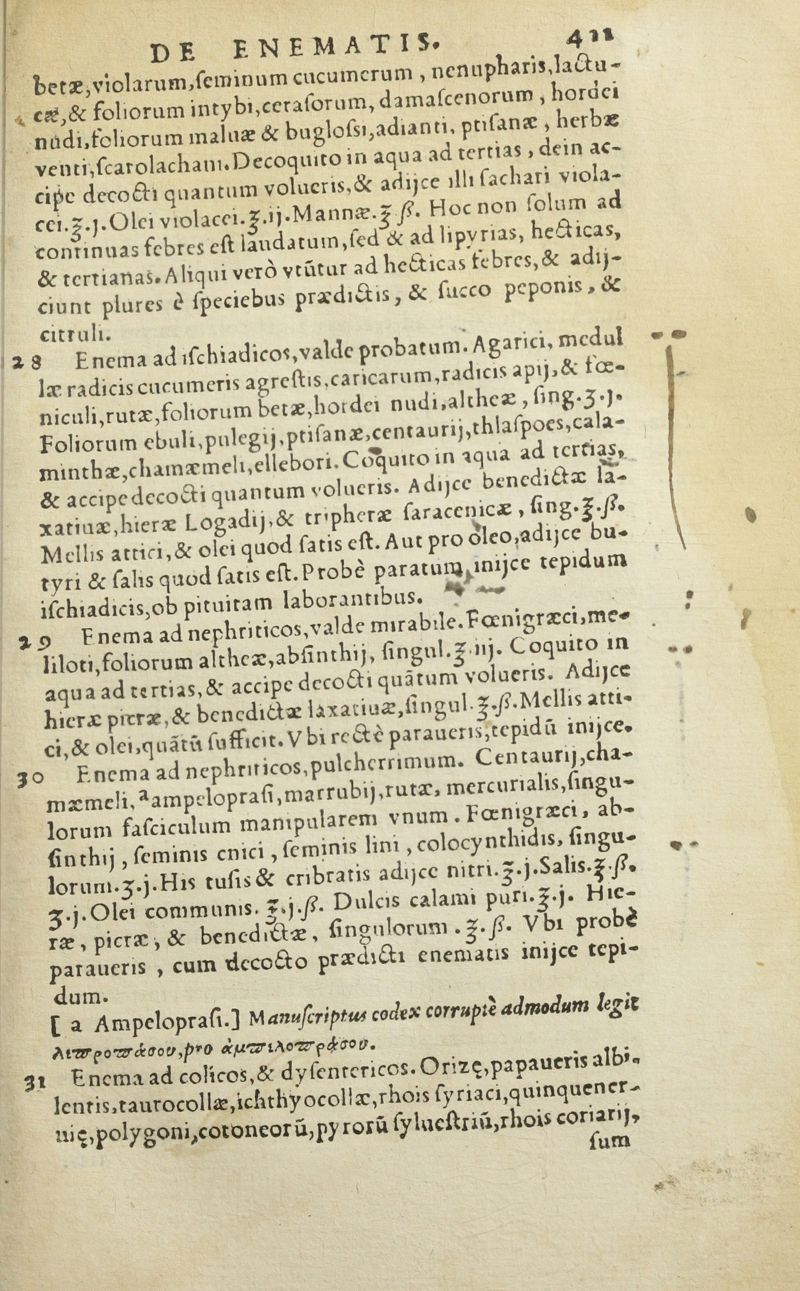 DE ENEMATIS. 411
betæ,violarum,ſeminum cucumerum , nenupharis,lactu-
cæ,& foliorum intybi,ceraſorum, damaſcenorum , hordei
nudi,foliorum maluæ & bugloſsi,adianti, ptiſanæ , herbæ
venti,ſcarolachani.Decoquito in aqua ad tertias , dein ac-
cipe decocti quantum volueris,& adijce illi ſachari viola-
cei.ʒ.j.Olei violacei.ʒ.ij.Mannæ.ʒ ß. Hoc non ſolum ad
continuas febres eſt laudatum,ſed & ad lipyrias, hecticas,
& tertianas.Aliqui verò vtũtur ad hecticas febres,& adij-
ciunt plures è ſpeciebus prædictis, & ſucco peponis , &
citruli.
28 Enema ad iſchiadicos,valde probatum. Agarici, medul
læ radicis cucumeris agreſtis,caricarum,radicis apij,& fœ-
niculi,rutæ,foliorum betæ,hordei nudi,altheæ , ſing.ʒ.j.
Foliorum ebuli,pulegij,ptiſanæ,centaurij,thlaſpoes,cala-
minthæ,chamæmeli,ellebori.Coquito in aqua ad tertias,
& accipe decocti quantum volueris. Adijce benedictæ la-
xatiuæ,hieræ Logadij,& tripheræ ſaracenicæ , ſing.ʒ.ß.
Mellis attici,& olei quod ſatis eſt. Aut pro oleo,adijce bu-
tyri & ſalis quod ſatis eſt.Probè paratum,inijce tepidum
iſchiadicis,ob pituitam laborantibus.
29 Enema ad nephriticos,valde mirabile.Fœnigræci,me-
liloti,foliorum altheæ,abſinthij, ſingul.ʒ.iij. Coquito in
aqua ad tertias,& accipe decocti quãtum volueris. Adijce
hieræ picræ,& benedictæ laxatiuæ,ſingul.ʒ.ß.Mellis atti-
ci,& olei,quãtũ ſufficit.Vbi rectè paraueris,tepidũ inijce.
30 Enema ad nephriticos,pulcherrimum. Centaurij,cha-
mæmeli,ᵃampelopraſi,marrubij,rutæ, mercurialis,ſingu-
lorum faſciculum manipularem vnum . Fœnigræci , ab-
ſinthij , ſeminis cnici , ſeminis lini , colocynthidis, ſingu-
lorum.ʒ.j.His tuſis & cribratis adijce nitri.ʒ.j.Salis.ʒ.ß.
ʒ.j.Olei communis. ʒ.j.ß. Dulcis calami puri.ʒ.j. Hie-
ræ , picræ, & benedictæ, ſingulorum .ʒ.ß. Vbi probè
paraueris , cum decocto prædicti enematis inijce tepi-
dum.
[ a Ampelopraſi.] Manuſcriptus codex corruptè admodum legit
λιπροπράσου,pro ἀμπιλοπράσου.
31 Enema ad colicos,& dyſentericos. Orizę,papaueris albi,
lentis,taurocollæ,ichthyocollæ,rhois ſyriaci,quinquener-
uię,polygoni,cotoneorũ,pyrorũ ſylueſtriũ,rhois coriarij,
ſum